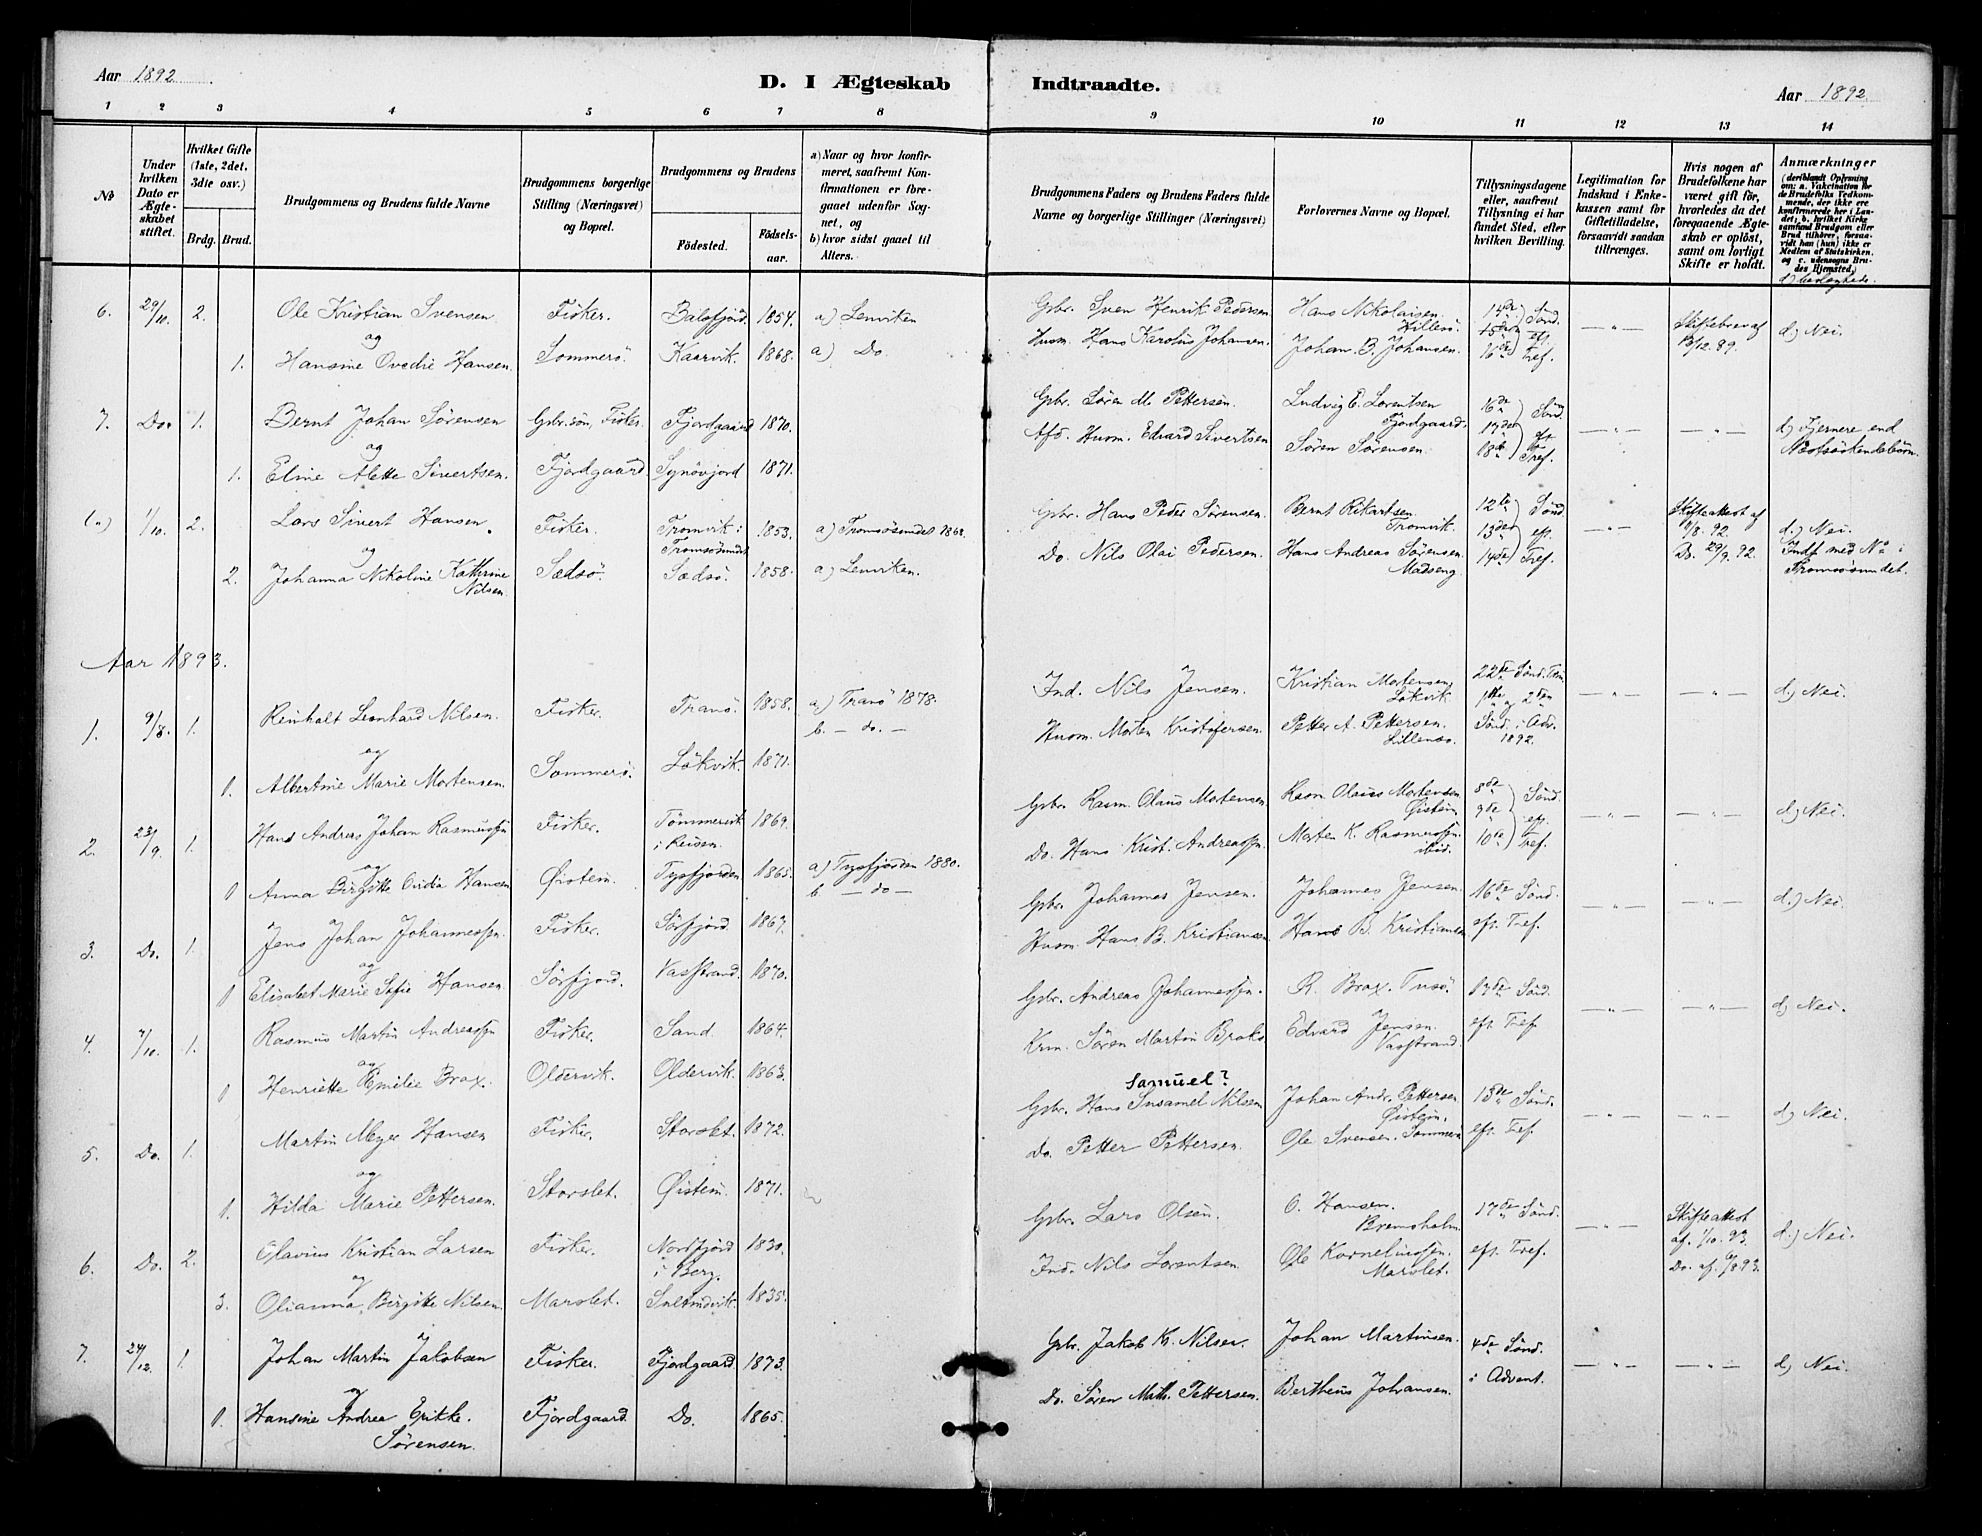 Aar 1892
D. I Ægteskab Indtraadte.
Aar 1892
1 2 3 4 5 6 7 8 9 10 11 12 13 14
№
Under hvilken Dato er Ægteskabet stiftet.
Hvilket Gifte (1ste, 2det, 3die osv.)
Brdg. Brud.
Brudgommens og Brudens fulde Navne
Brudgommens borgerlige Stilling (Næringsvei) og Bopæl.
Brudgommens og Brudens
Fødested. Fødselsaar.
a) Naar og hvor konfirmeret, saafremt Konfirmationen er foregaaet udenfor Sognet, og
b) hvor sidst gaaet til Alters.
Brudgommens Faders og Brudens Faders fulde Navne og borgerlige Stillinger (Næringsvei)
Forlovernes Navne og Bopæl.
Tillysningsdagene eller, saafremt Tillysning ei har fundet Sted, efter hvilken Bevilling.
Legitimation for Indskud i Enkekassen samt for Giftetilladelse, forsaavidt saadan tiltrænges.
Hvis nogen af Brudefolkene har været gift før, hvorledes da det foregaaende Ægteskab er opløst, samt om lovligt Skifte er holdt.
Anmærkninger (deriblandt Oplysning om: a. Vakcination for de Brudefolks Vedkommende, der ikke ere konfirmerede her i Landet; b. hvilket Kirkesamfund Brudgom eller Brud tilhører, forsaavidt han (hun) ikke er Medlem af Statskirken, og c. udensogns Brudes Hjemsted.)
6. 29/10. 2. Ole Kristian Svensen Fisker. Balsfjord. 1854. a) Lenviken Gbr. Sven Henrik Pedersen Hans Nikolaisen Hillesö. 14de 15de Sönd. — " — Skiftebrev af d) Nei.
og
1. Hansine Ovedie Hansen. Sommerö Kaarvik. 1868. a) Do. Husm. Hans Karolius Johansen. Johan B. Johansen. 16de ef. Tref. 13/12 89.
7. Do. 1. Bernt Johan Sörensen Gbr.sön, Fisker. Fjordgaard 1870. Gbr. Sören M. Pettersen. Ludvig E. Lorentsen Fjordgaard. 16de 17de Sönd. — " — — " — d) Fjernere end
og
1. Eline Alette Sivertsen. Fjordgaard Synövjord 1871. Afd. Husm. Edvard Sivertsen Sören Sörensen. 18de ef. Tref. Næstsöskendebörn.
(") 1/10. 2. Lars Sivert Hansen Fisker. Tromvik i Tromsösundet 1853. a) Tromsösundet 1868. Gbr. Hans Peder Sörensen. Bernt Rikartsen Tromvik. 12te 13de Sönd. — " — Skifteattest af 11/8. 92. d.) Nei.
og
2. Johanna Nikoline Kathrine Nilsen. Sædsö. Sædsö. 1858. a) Lenviken. Do. Nils Olai Pedersen. Hans Andreas Sörensen Madseng. 14de ef. Tref. Do. 29/9. 92. Indf. med № i Tromsösundet.
Aar 1893.
1. 9/8. 1. Reinholt Leonhard Nilsen. Fisker. Tranö. 1858. a) Tranö 1878. b. — do. — Ind. Nils Jensen. Kristian Mortensen Lökvik. 22de Sönd. Trin. 1ste og 2den — " — — " — d) Nei.
og
1. Albertine Marie Mortensen. Sommerö. Lökvik. 1871. Husm. Morten Kristofersen. Petter A. Pettersen. Sönd. i Adv. 1892.
2. 23/9. 1. Hans Andreas Johan Rasmussen Fisker. Tömmervik i Reisen. 1869. Gbr. Rasm. Olaus Mortensen. Rasm. Olaus Mortensen Öistein 8de 9de Sönd. — " — — " — d) Nei.
og
1 Anna Birgitte Ovidia Hansen Öistein. Tysfjorden 1865. a) Tysfjorden 1880. b — do — Do. Hans Krist. Andreassen. Morten K. Rasmussen. ibid. 10de ef. Tref.
3. Do. 1. Jens Johan Johannessen. Fisker. Sörfjord. 1867. Gbr. Johannes Jensen. Johannes Jensen. 16de Sönd. — " — — " — d.) Nei.
og
1 Elisabet Marie Sofie Hansen. Sörfjord. Vasstrand. 1870. Husm. Hans B. Kristiansen. Hans B. Kristiansen eft. Tref.
4. 7/10. 1. Rasmus Martin Andreassen Fisker. Sand. 1864. Gbr. Andreas Johannessen. R. Brox. Tusö. 17de Sönd. — " — — " — d) Nei.
og
1 Henriette Emilie Brox. Oldervik. Oldervik. 1863. Krm. Sören Martin Broks Edvard Jensen. Vasstrand. eft. Tref.
Samuel?
5. Do. 1. Martin Meyer Hansen Fisker. Storslet. 1872. Gbr. Hans Susamel Nilsen Johan Andr. Pettersen Öistein. 15de Sönd. — " — — " — d) Nei.
og
1. Hilda Marie Pettersen. Storslet. Öistein. 1871. Do. Petter Pettersen. Ole Svensen. Sommerö eft. Tref.
6. Do. 2. Olavius Kristian Larsen Fisker. Nordfjord i Berg. 1830. Gbr. Lars Olsen. O. Hansen. Bremsholm. 17de Sönd. — " — Skifteattest af. 1/10. 93. d.) Nei.
og
3. Olianna Birgitte Nilsen. Marslet. 1835. Ind. Nils Lorentsen. Ole Kornelinssen. Marslet. eft. Tref. Do. af. 6/8 93.
7. 24/12. 1. Johan Martin Jakobsen Fisker. Fjordgaard. 1873. Gbr. Jakob K. Nilsen. Johan Martinsen. 4de Sönd. — " — — " — d) Nei.
og
1. Hansine Andrea Erikke. Sörensen. Fjordgaard. Do. 1865. Do. Sören Math. Pettersen. Bertheus Johansen. i Advent.